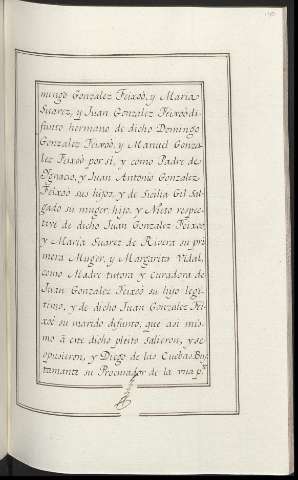 mingo Gonzalez Feixoó, y Maria
Suarez, y Juan Gonzalez Feixoó di-
funto hermano de dicho Domingo
Gonzalez Feixoó, y Manuel Gonza-
lez Feixoó por si, y como Padre de
Ygnacio, y Juan Antonio Gonzalez
Feixoó sus hijos, y de Sicilia Gil Sal-
gado su muger, hijo, y Nieto respec-
tive de dicho Juan Gonzalez Feixoó,
y Maria Suarez de Rivera su pri-
mera Muger, y Margarita Vidal,
como Madre tutora y curadora de
Juan Gonzalez Feixoó su hijo legi-
timo, y de dicho Juan Gonzalez Fei-
xoó su marido difunto, que asi mis-
mo â este dicho pleito salieron, y se
opusieron, y Diego de las Cuebas Bus-
tamante su Procurador de la una p.te